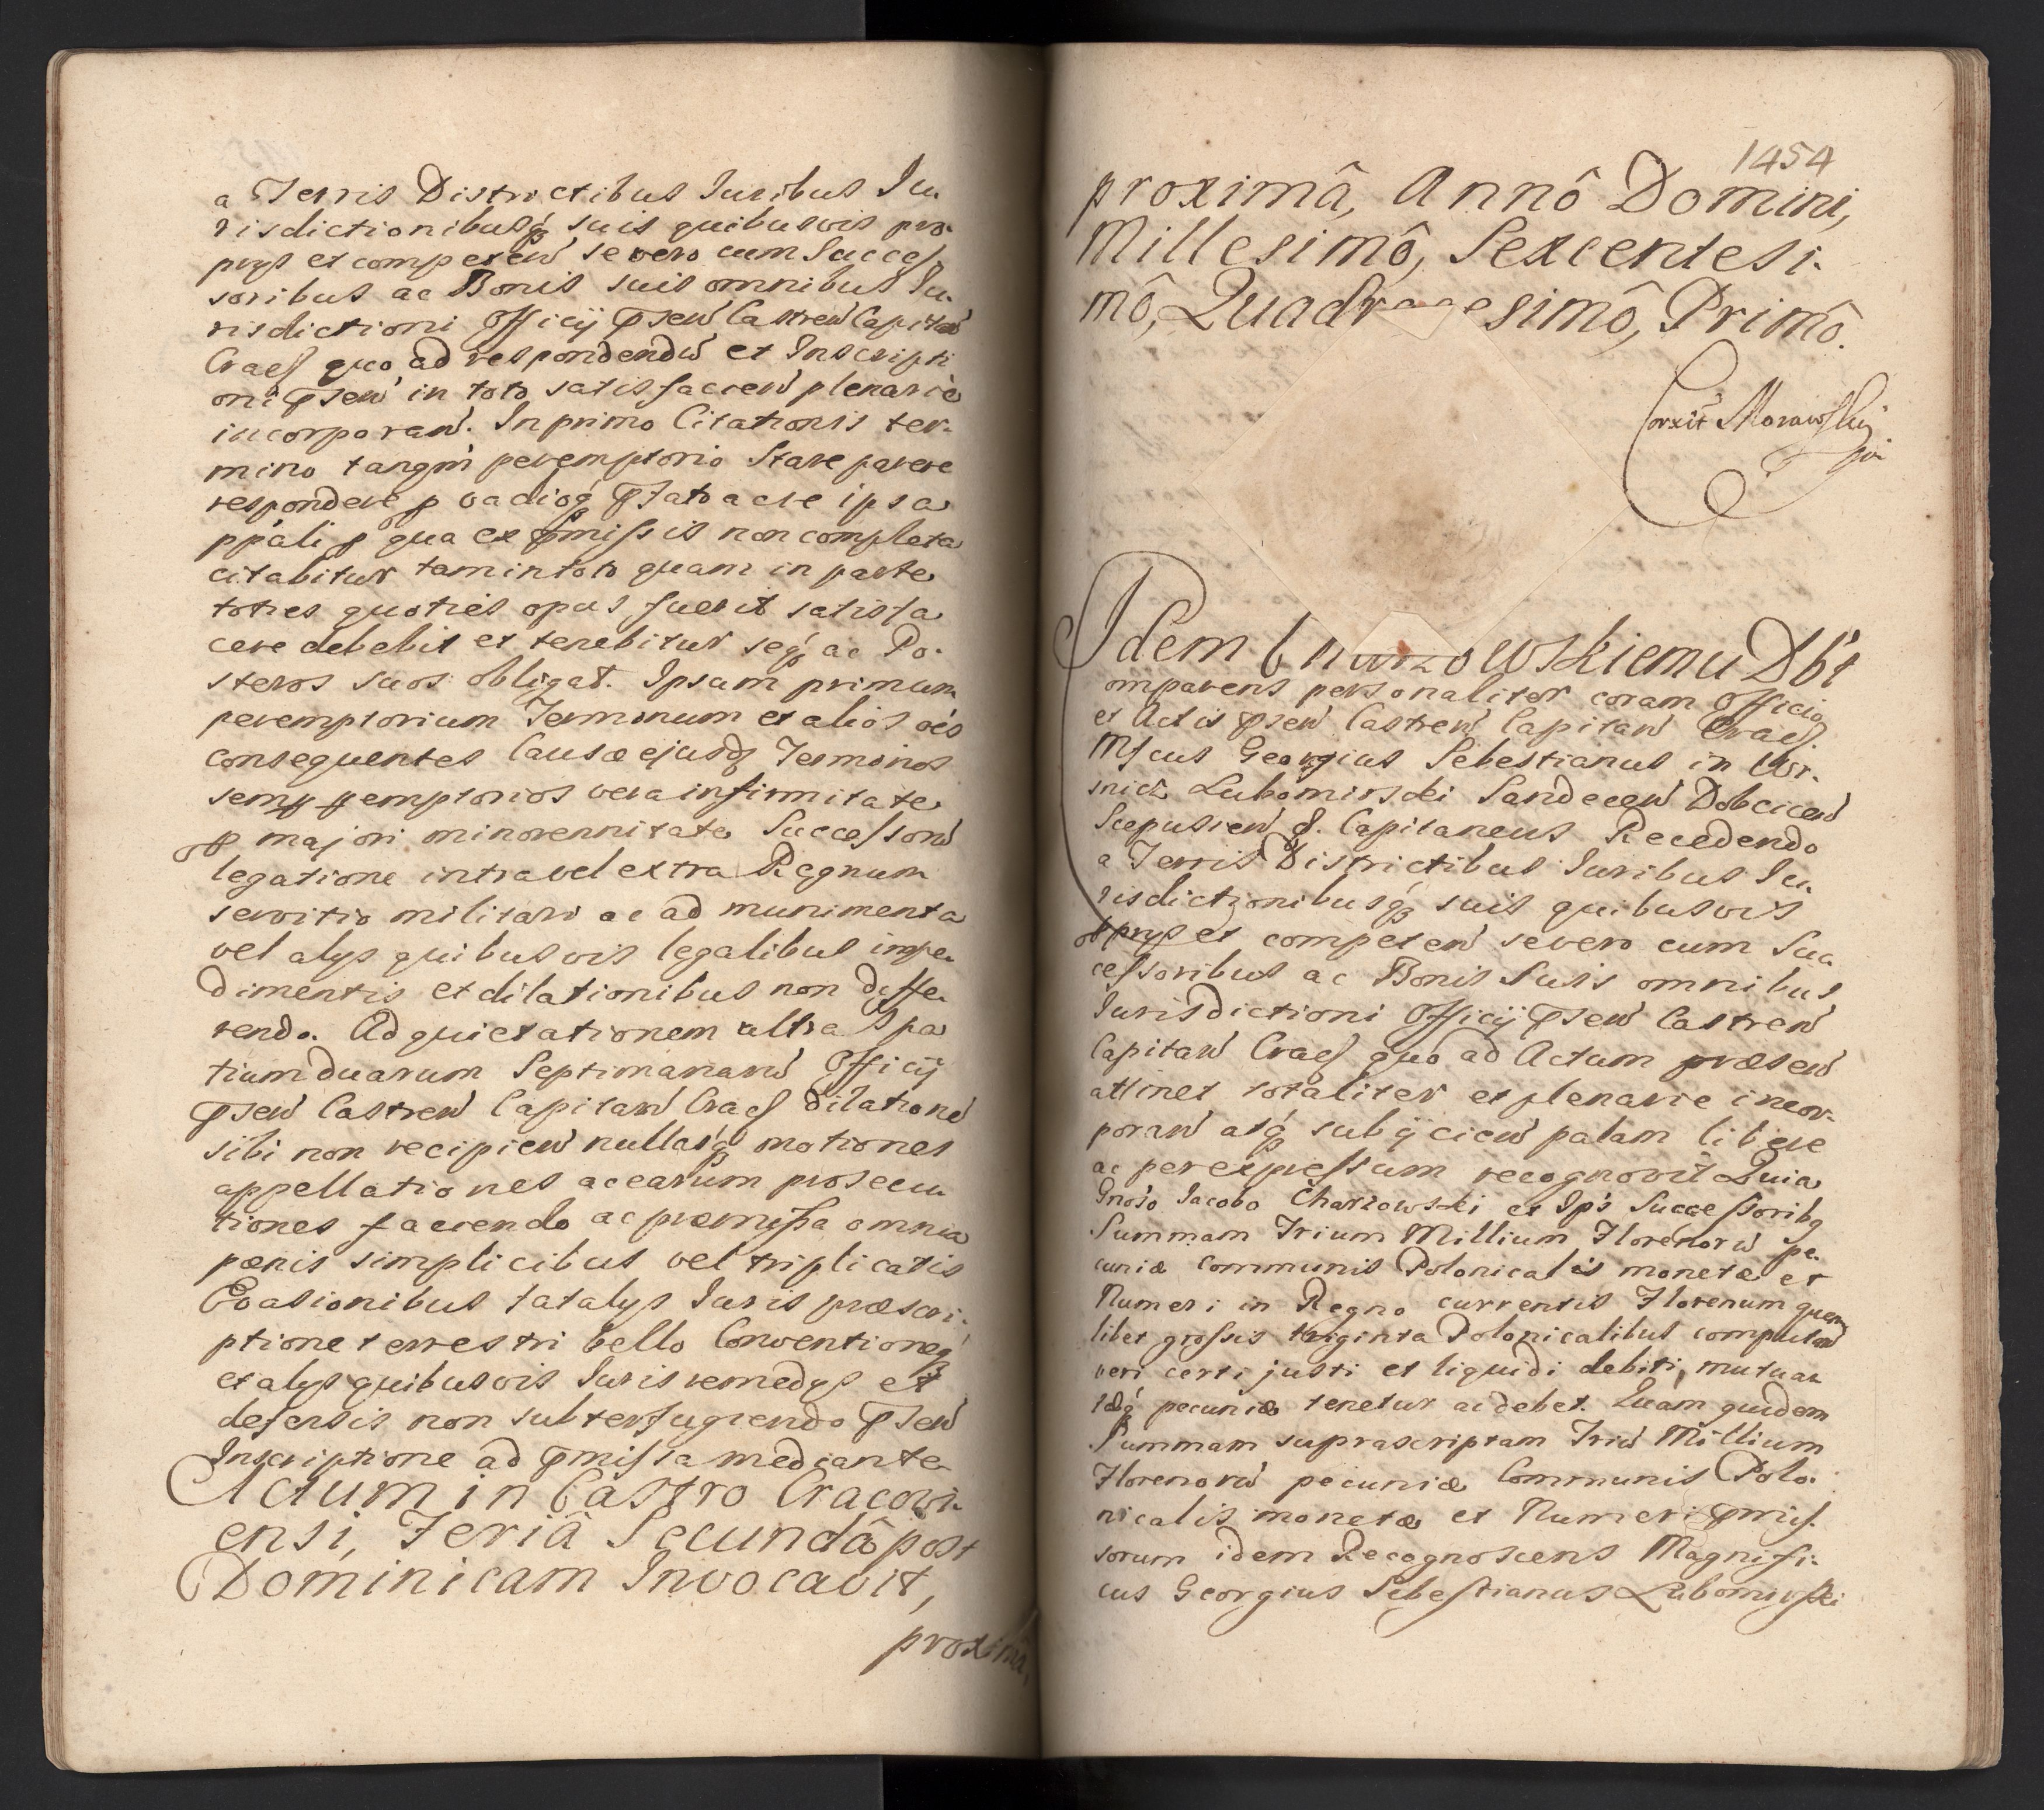 a Terris Districtibus Juribus Ju-
risdictionibusq́ suis quibusvis pro-
prys et competeń se vero cum Succes-
soribus ac Bonis suis omnibus Ju-
risdictioni Officij pseń Castreń Capitań
Cracs quo ad respondendū et Inscripti
oni pseń in toto satisfacień plenarie
incorporań. In primo Citationis ter-
mino tanqm̄ peremptorio Stare parere
respondere p vadioq́ pstato ac re ipsa
ppáli p qua ex pmissis non completa
citabitur tam in toto quam in parte
toties quoties opus fuerit satisfa
cere debebit et tenebitur seq́ ac Po-
steros suos obligat. Ipsum primum
peremptorium Terminum et alios oēs
consequentes Causæ ejusd Terminos
semp pemptorios vera infirmitate
p majori minorennitate Successorū
legatione intra vel extra Regnum
servitio militari ac ad munimenta
vel alys quibusvis legalibus impe-
dimentis et dilationibus non diffe-
rendo. Ad quietationem ultra Spa
tium duarum Septimanarū Officij
pseń Castreń Capitań Cracs dilationē
sibi non recipień nullasq́ motiones
appellationes ac earum prosecu
tiones faciendo ac præmissa omnia
pœnis simplicibus vel triplicatis
Evasionibus fatalys Juris præscri-
ptione terrestri bello Conventioneq́
et alys quibusvis Juris remedys et
defensis non subterfugiendo pseń
Inscriptione ad pmissa mediante
Actum in Castro Cracovi-
ensi, Feriâ Secundâ post
Dominicam Invocavit,
proximâ,
1454
proximâ, Annô Domini,
Millesimô, Sexcentesi-
mô, Quadragesimô, Primô.
Corxit Morawskÿ
Idem Charzowskiemu Dbt
omparens personaliter coram Officio
et Actis pseń Castreń Capitań Cracs.
Mfcus Georgius Sebestianus in Wi-
snicz Lubomirski Sandeceń Dobciceń
Scepusień &. Capitaneus Recedendo
a Terris Districtibus Juribus Ju-
risdictionibusq́ suis quibusvis
prys et competeń se vero cum Suc-
cessoribus ac Bonis Suis omnibus
Jurisdictioni Officij pseń Castreń
Capitań Cracs quo ad Actum præseń
attinet totaliter et plenarie incor-
porań atq́ subÿcień palam libere
ac per expressum recognovit Quia
Gnoso Jacobo Charzowski et Ips Successoribq
Summam Trium Millium Florenorū pe-
cuniæ Communis Polonicalis monetæ et
Numeri in Regno currentis Florenum quem
libet grossis triginta Polonicalibus computań
veri certi justi et liquidi debiti, mutuat
tæq́ pecuniæ tenetur ac debet. Quam quidem
Summam suprascriptam Triū Millium
Florenorū pecuniæ Communis Polo-
nicalis monetæ et Numeri pmis-
sorum idem Recognoscens Magnifi-
cus Georgius Sebestianus Lubomirski